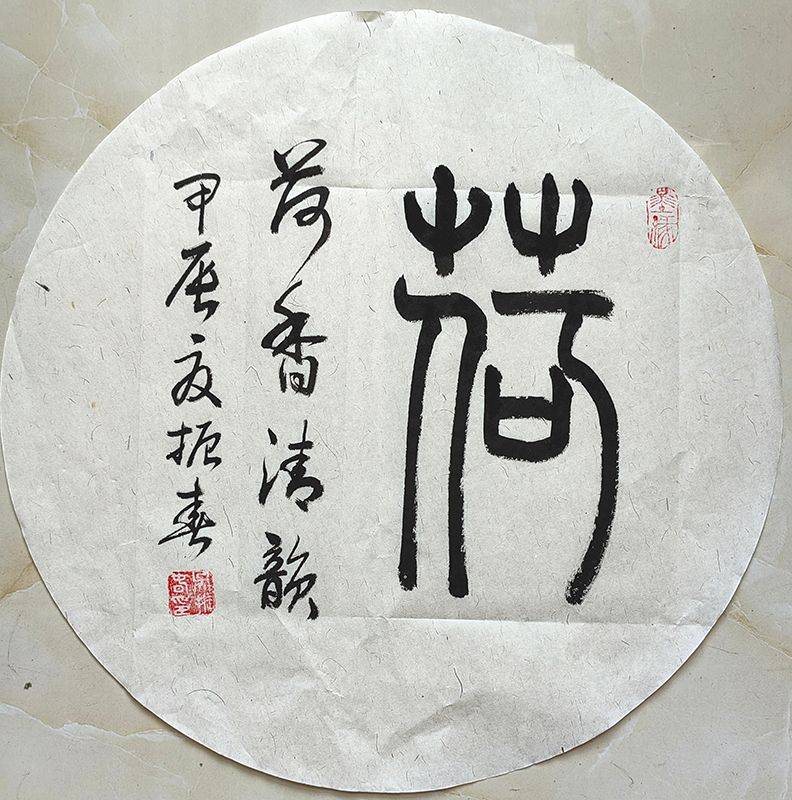 荷
荷香清韻
甲辰夏振春